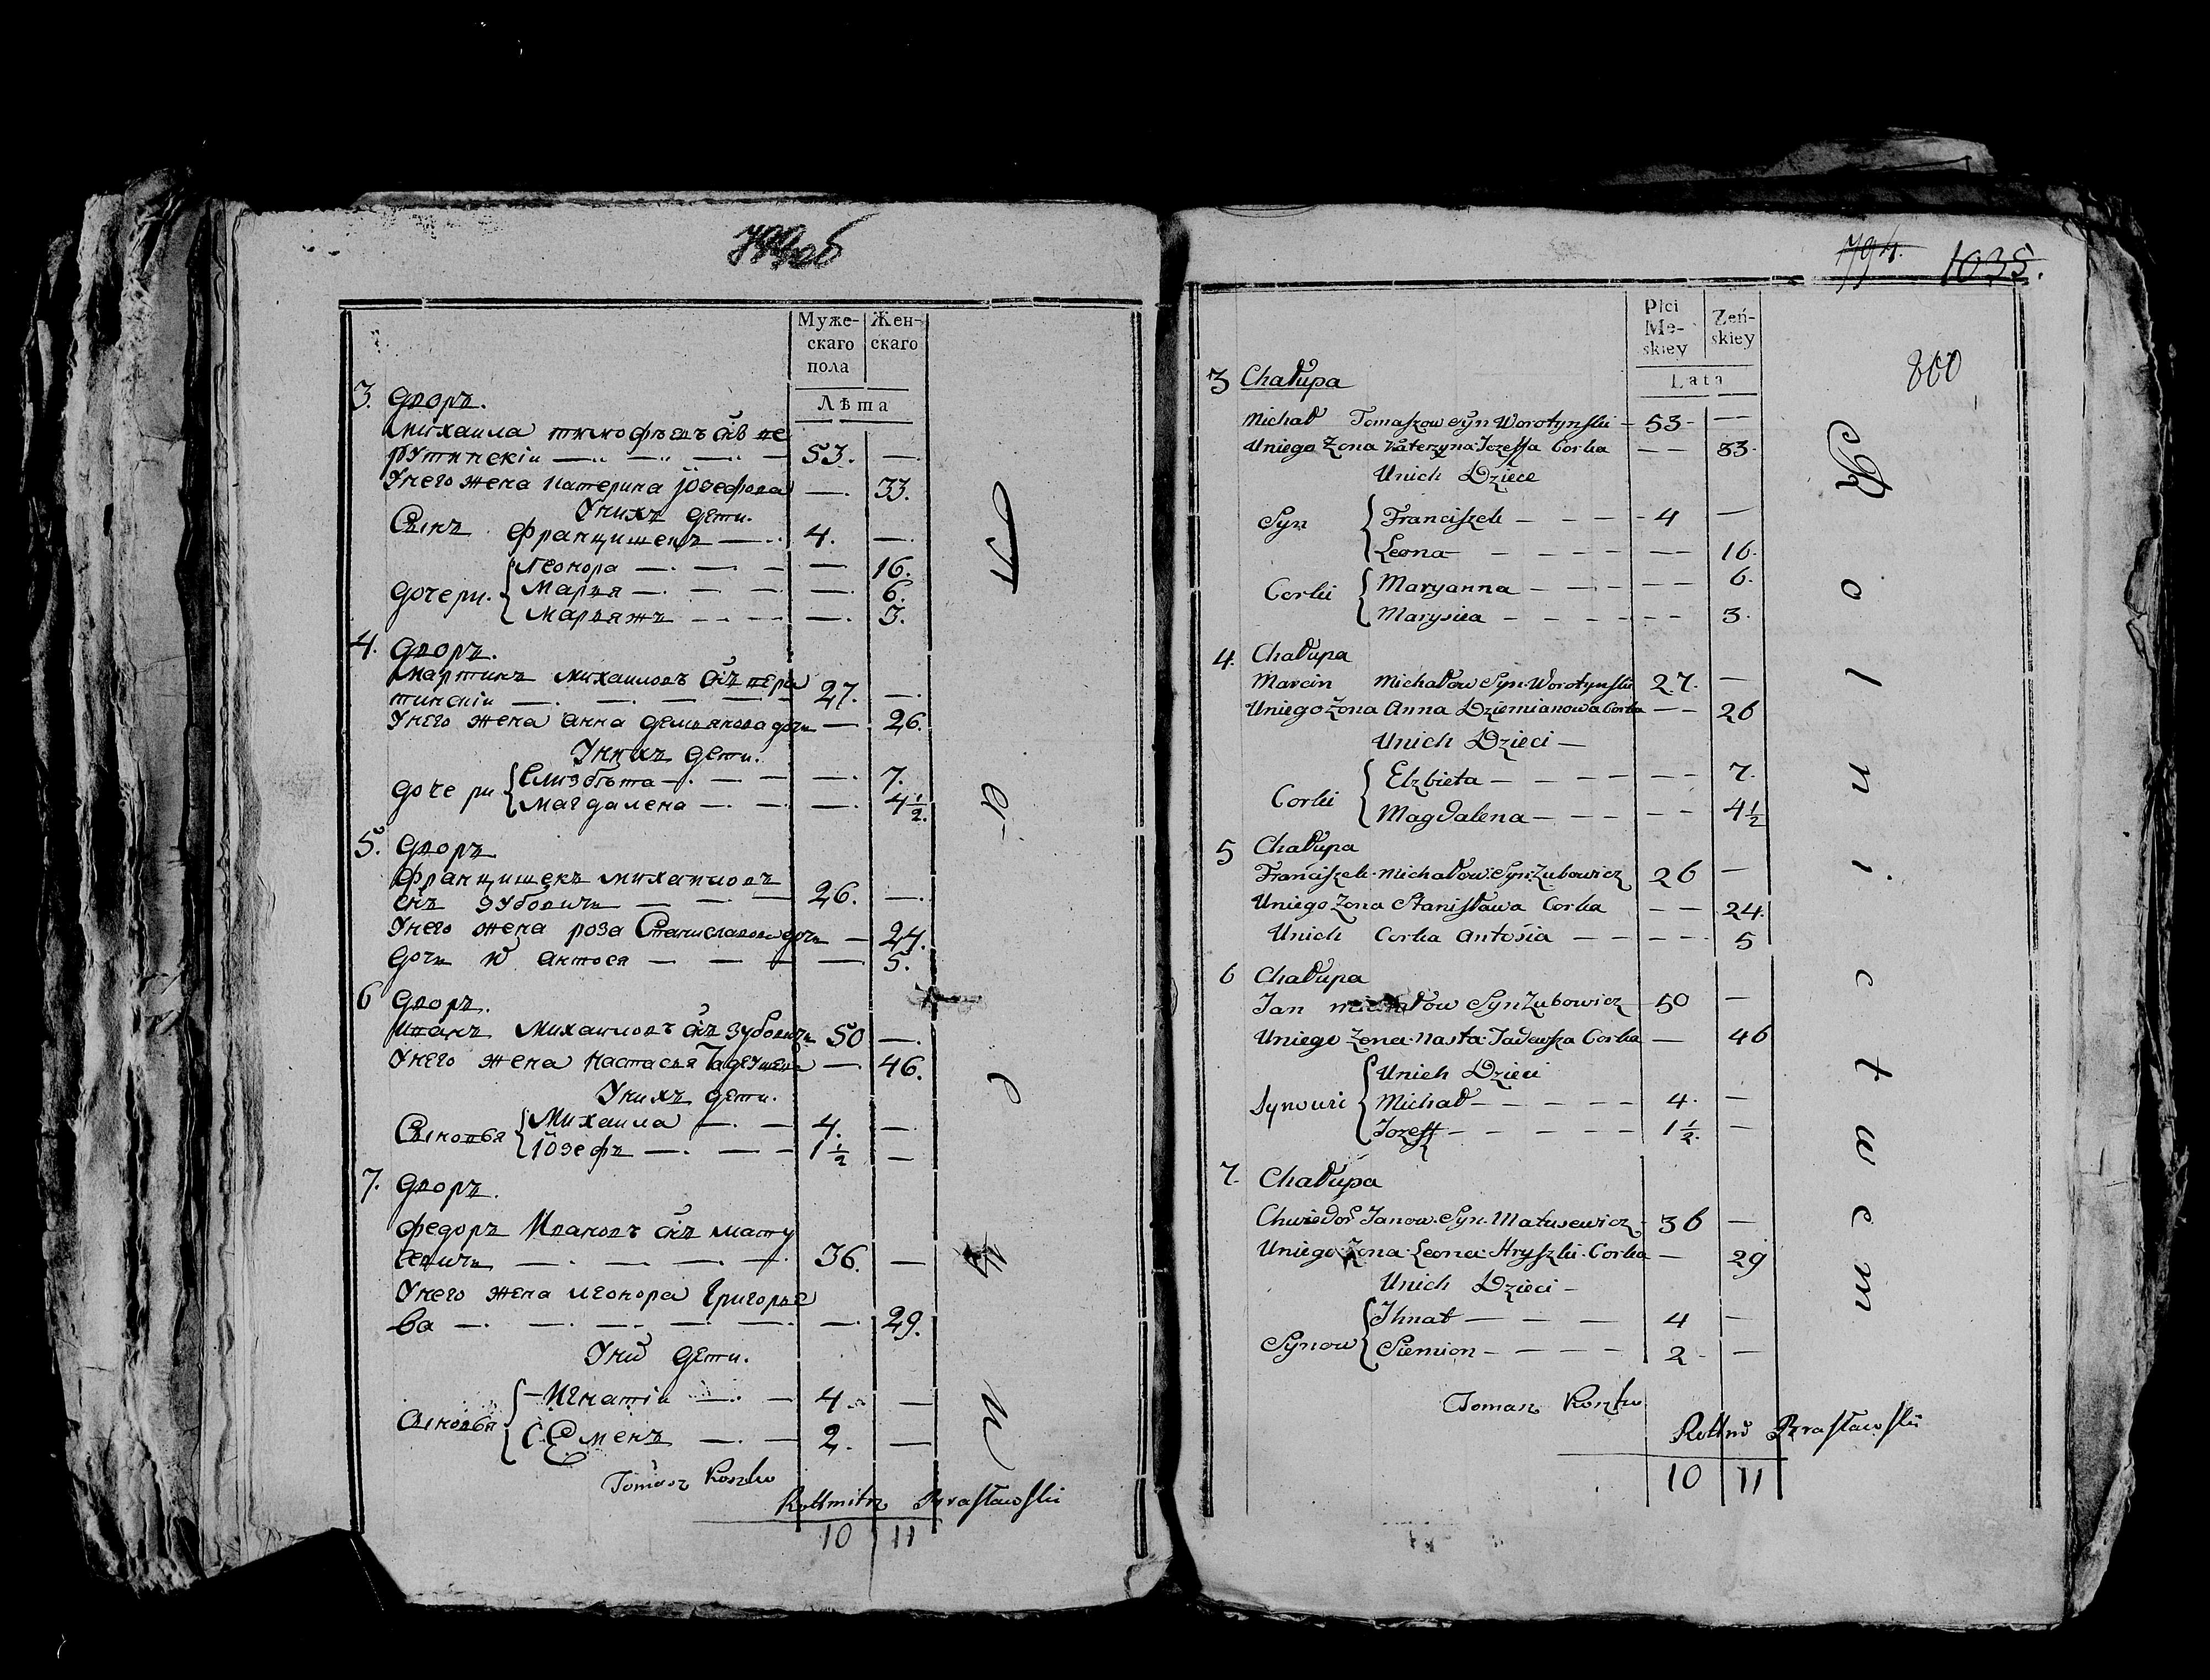 Муже-
скаго
пола
Жен-
скаго
Лѣта
3. Дворъ.
Михаила тимофѣевъ сынъ ве
рутинскiи 53. —
Унего жена Катерина Iозефова — 33.
Унихъ дети.
Сынъ Францишекъ — 4. —
Дочери. Леонора — — 16.
Марья — — 6.
Марьяжъ — — 3.
4. Дворъ.
Мартинъ Михаиловъ снъ веру
тинскiи — 27. —
Унего жена Анна Демьянова дочь — 26.
Унихъ дети.
Дочери Елизбѣта — — 7.
Магдалена — — 4½.
5. Дворъ
Францишекъ Михаиловъ
снъ Зубовичь — 26. —
Унего жена роза Станиславова дочь — 24.
Дочь Антося — — 5.
6 Дворъ.
Иванъ Михаиловъ снъ Зубовичь 50 —
Унего жена Настасья Тадеушева — 46.
Унихъ дети.
Сыновья Михаила — 4. —
Iозефъ — 1½ —
7. Дворъ.
Федоръ Ивановъ снъ мату
севичь — 36. —
Унего жена Леонора Григорье
ва — — 29.
дети.
Сыновья Игнатiи — 4. —
Семенъ — 2. —
Tomasz Koszko
Rottmitrz Brasławski
10 11
794. 1035.
800
Płci
Me-
skiey
Zeń-
skiey
Lata
3 Chałupa
Michał Tomaszow Syn Worotynski — 53 —
Uniego Zona Katerzyna Jozeffa Corka — — 33.
Unich Dziece
Syn Franciszek — 4 —
Leona — — 16.
Corki Maryanna — — 6.
Marysia — — 3.
4. Chałupa
Marcin Michałow Syn Worotynski 27. —
Uniego Zona Anna Dziemianowa Corka — — 26
Unich Dzieci —
Corki Elzbieta — — 7.
Magdalena — — 4½
5 Chałupa
Franciszek Michałow Syn Zubowicz 26 —
Uniego Zona Stanisława Corka — — 24.
Unich Corka Antosia — — 5
6 Chałupa
Jan Michałow Syn Zubowicz 50 —
Uniego Zona Nasta Tadewsza Corka — 46
Unich Dzieci
Synowi Michał — 4. —
Jozeff — 1½. —
7. Chałupa
Chwiedor Janow Syn Matusewicz 36 —
Uniego Zona Leona Hryszki Corka — 29
Unich Dzieci —
Synow Ihnat — 4 —
Siemion — 2 —
Tomasz Koszko
Brasławski
10 11
Rolnictwem